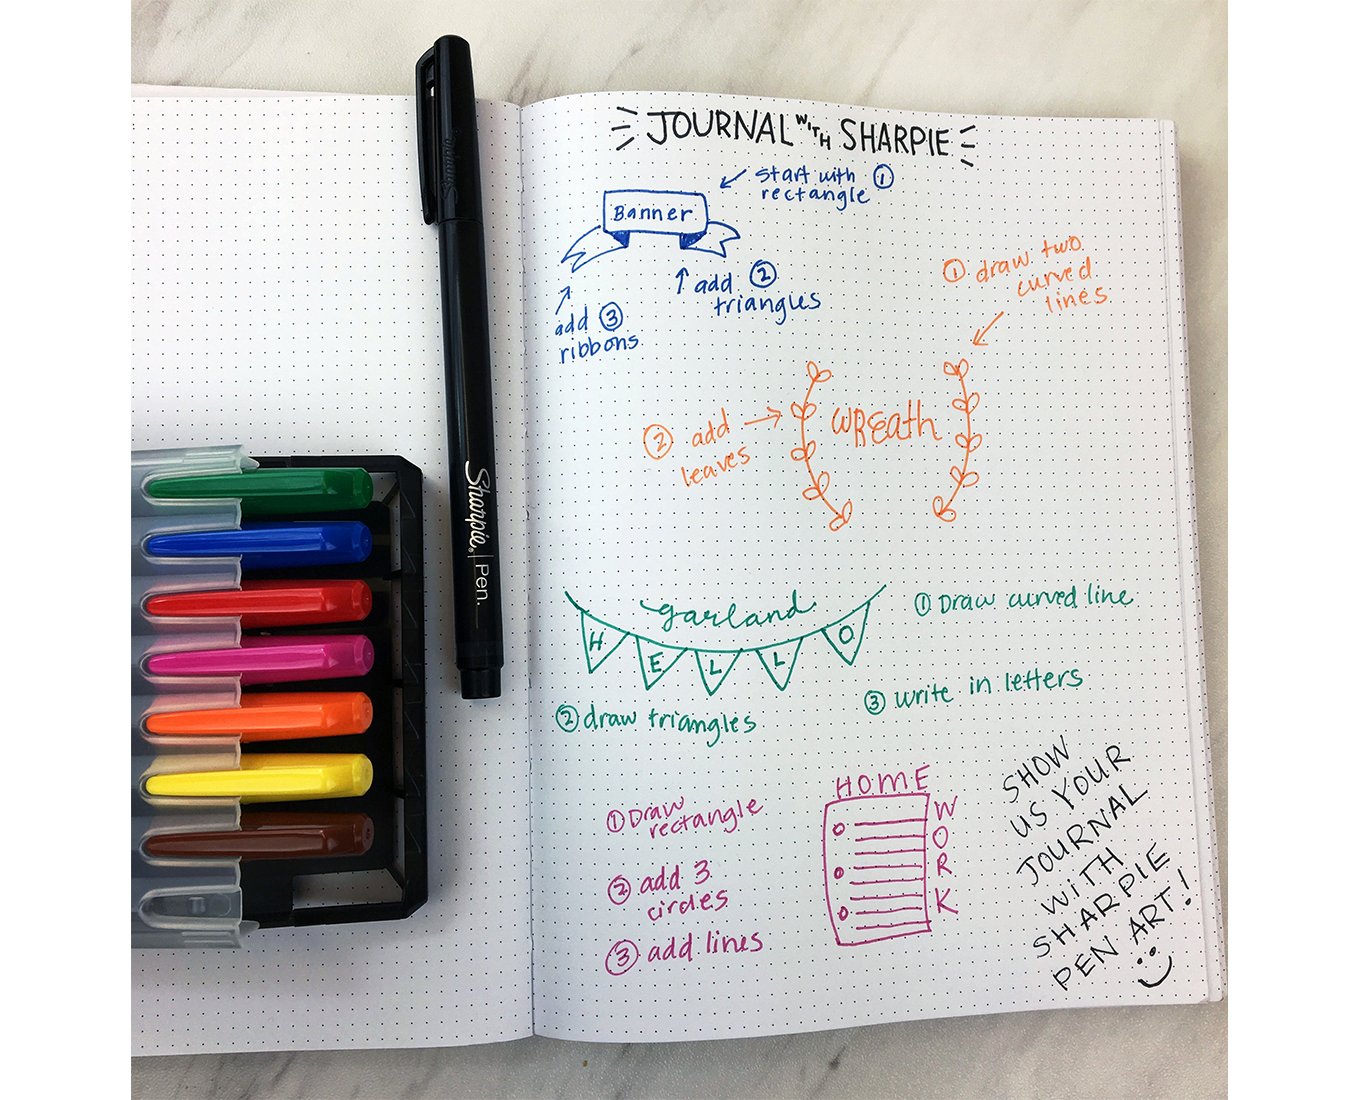 JOURNAL WITH SHARPIE
start with ①
rectangle
Banner
add ②
triangles
add ③
ribbons
① draw two
curved
lines
② add
leaves
WREath
garland
HELLO
① Draw curved line
② draw triangles
③ write in letters
① Draw
rectangle
② add 3
circles
③ add lines
HOME
WORK
SHOW
US YOUR
JOURNAL
WITH
SHARPIE
PEN ART!
Sharpie® | Pen.
Sharpie